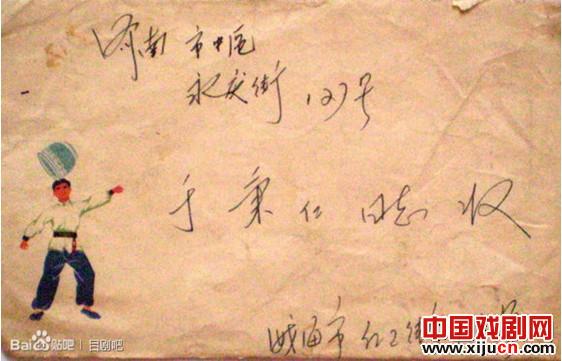 济南市中区
永庆街 127号
于秉仁同志收
威海市
Bai贴吧 | 吕剧吧
中国戏剧网
www.xijucn.com